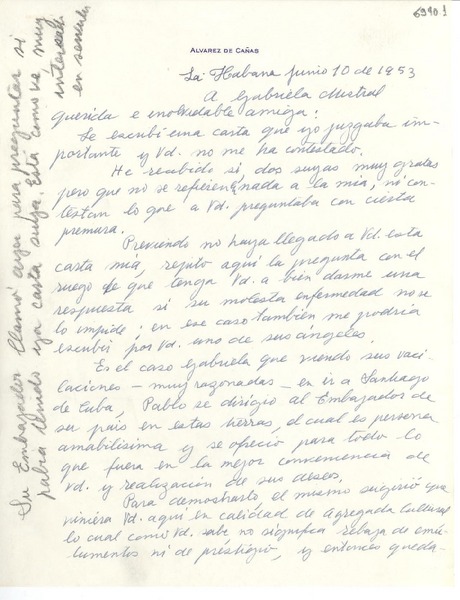 6990 1
ALVAREZ DE CAÑAS
La Habana junio 10 de 1953
A Gabriela Mistral
querida e inolvidable amiga:
Le escribí una carta que yo juzgaba im-
portante y Vd. no me ha contestado.
He recibido si, dos suyas muy gratas
pero que no se refieren a nada a la mía, ni con-
testan lo que a Vd. preguntaba con cierta
premura.
Previendo no haya llegado a Vd. esta
carta mía, repito aquí la pregunta con el
ruego de que tenga Vd. a bien darme una
respuesta si su molesta enfermedad no se
lo impide; en ese caso también me podría
escribir por Vd. uno de sus ángeles.
Es el caso Gabriela que viendo sus vaci-
laciones — muy razonadas — en ir a Santiago
de Cuba, Pablo se dirigió al Embajador de
su país en estas tierras, el cual es persona
amabilísima y se ofreció para todo lo
que fuera en la mejor conveniencia de
Vd. y realización de sus deseos.
Para demostrarlo el mismo sugirió que
viniera Vd. aquí en calidad de Agregada Cultural
lo cual como Vd. sabe no significa rebaja de emo-
lumentos ni de prestigio, y entonces queda-
Su Embajador llamó ayer para preguntar si
había llegado ya carta suya. Está como ve muy
interesado
en